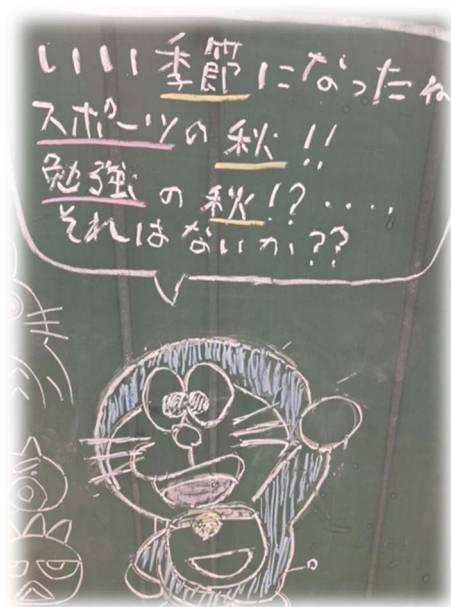 いい季節になったね
スポーツの秋!!
勉強の秋!?....
それはないか??